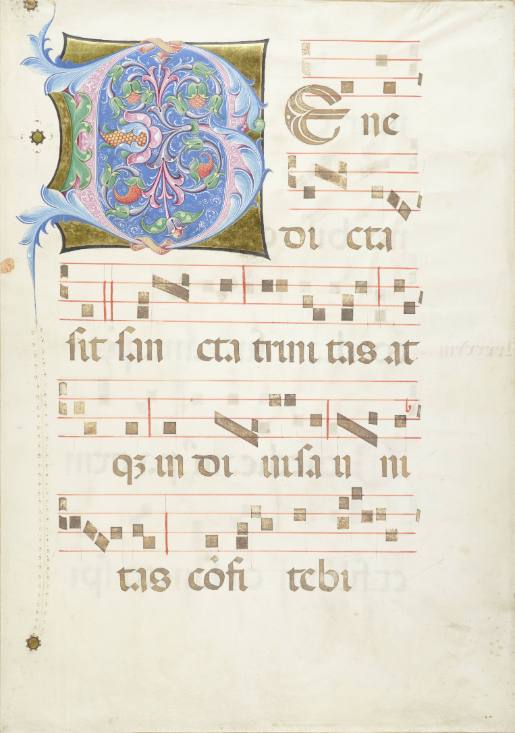 BEne
di cta
sit san cta trini tas at
qȝ in di uisa u ni
tas cōfi tebi